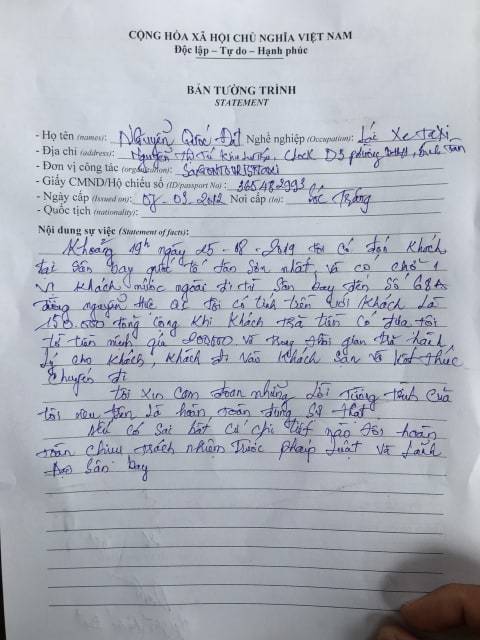 CỘNG HÒA XÃ HỘI CHỦ NGHĨA VIỆT NAM
Độc lập – Tự do – Hạnh phúc
BẢN TƯỜNG TRÌNH
STATEMENT
- Họ tên (names): Nguyễn Quốc Đạt Nghề nghiệp (Occupation): Lái Xe taxi
- Địa chỉ (address): Nguyễn Thị Tú Khu phố, Block D3 phường Bình Tân
- Đơn vị công tác (organization): SAIGONTOURIST(TAXI)
- Giấy CMND/Hộ chiếu số (ID/passport No): 365482993
- Ngày cấp (Issued on): 07-03-2012 Nơi cấp (in): Sóc Trăng
- Quốc tịch (nationality):
Nội dung sự việc (Statement of facts):
Khoảng 19h ngày 25-08-2019 tôi có đón khách
tại sân bay quốc tế tân Sơn nhất và có chở 1
vị khách nước ngoài đi từ sân bay đến số 68A
đường nguyễn tôi có tính tiền với khách là
150.000 tổng cộng khi khách trả tiền có đưa tôi
tờ tiền mệnh giá 200000 và trong thời gian trả hành
lý cho khách, khách đi vào khách sạn và kết thúc
chuyến đi
tôi xin cam đoan những lời tường trình của
tôi nêu trên là hoàn toàn đúng sự thật.
Nếu có sai bất cứ chi tiết nào tôi hoàn
toàn chịu trách nhiệm trước pháp luật và Lãnh
Đạo sân bay